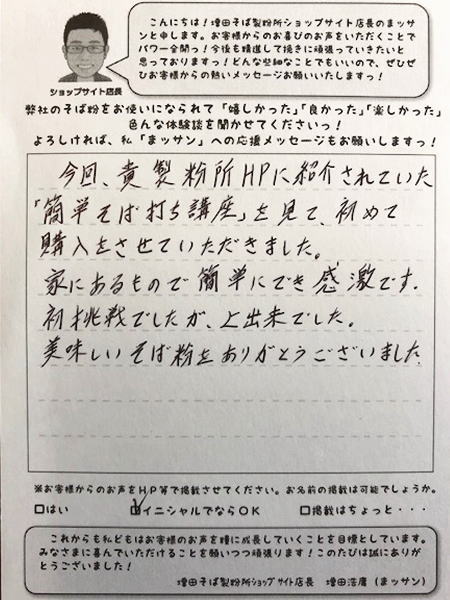 こんにちは！増田そば製粉所ショップサイト店長のまッサ
ンと申します。お客様からのお喜びのお声をいただくことで
パワー全開っ！今後も精進して挽きに頑張っていきたいと
思っておりますっ！どんな些細なことでもいいので、ぜひぜ
ひお客様からの熱いメッセージお願いいたしますっ！
ショップサイト店長
弊社のそば粉をお使いになられて「嬉しかった」「良かった」「楽しかった」
色んな体験談を聞かせてくださいっ！
よろしければ、私「まッサン」への応援メッセージもお願いしますっ！
今回、貴製粉所HPに紹介されていた
「簡単そば打ち講座」を見て、初めて
購入をさせていただきました。
家にあるもので簡単にでき感激です.
初挑戦でしたが、上出来でした。
美味しいそば粉をありがとうございました.
※お客様からのお声をHP等で掲載させてください。お名前の掲載は可能でしょうか。
□はい ☑イニシャルでならOK □掲載はちょっと・・・
これからも私どもはお客様のお声を糧に成長していくことを目標としています。
みなさまに喜んでいただけることを願いつつ頑張ります！このたびは誠にありが
とうございました！
増田そば製粉所ショップサイト店長 増田浩庸（まッサン）